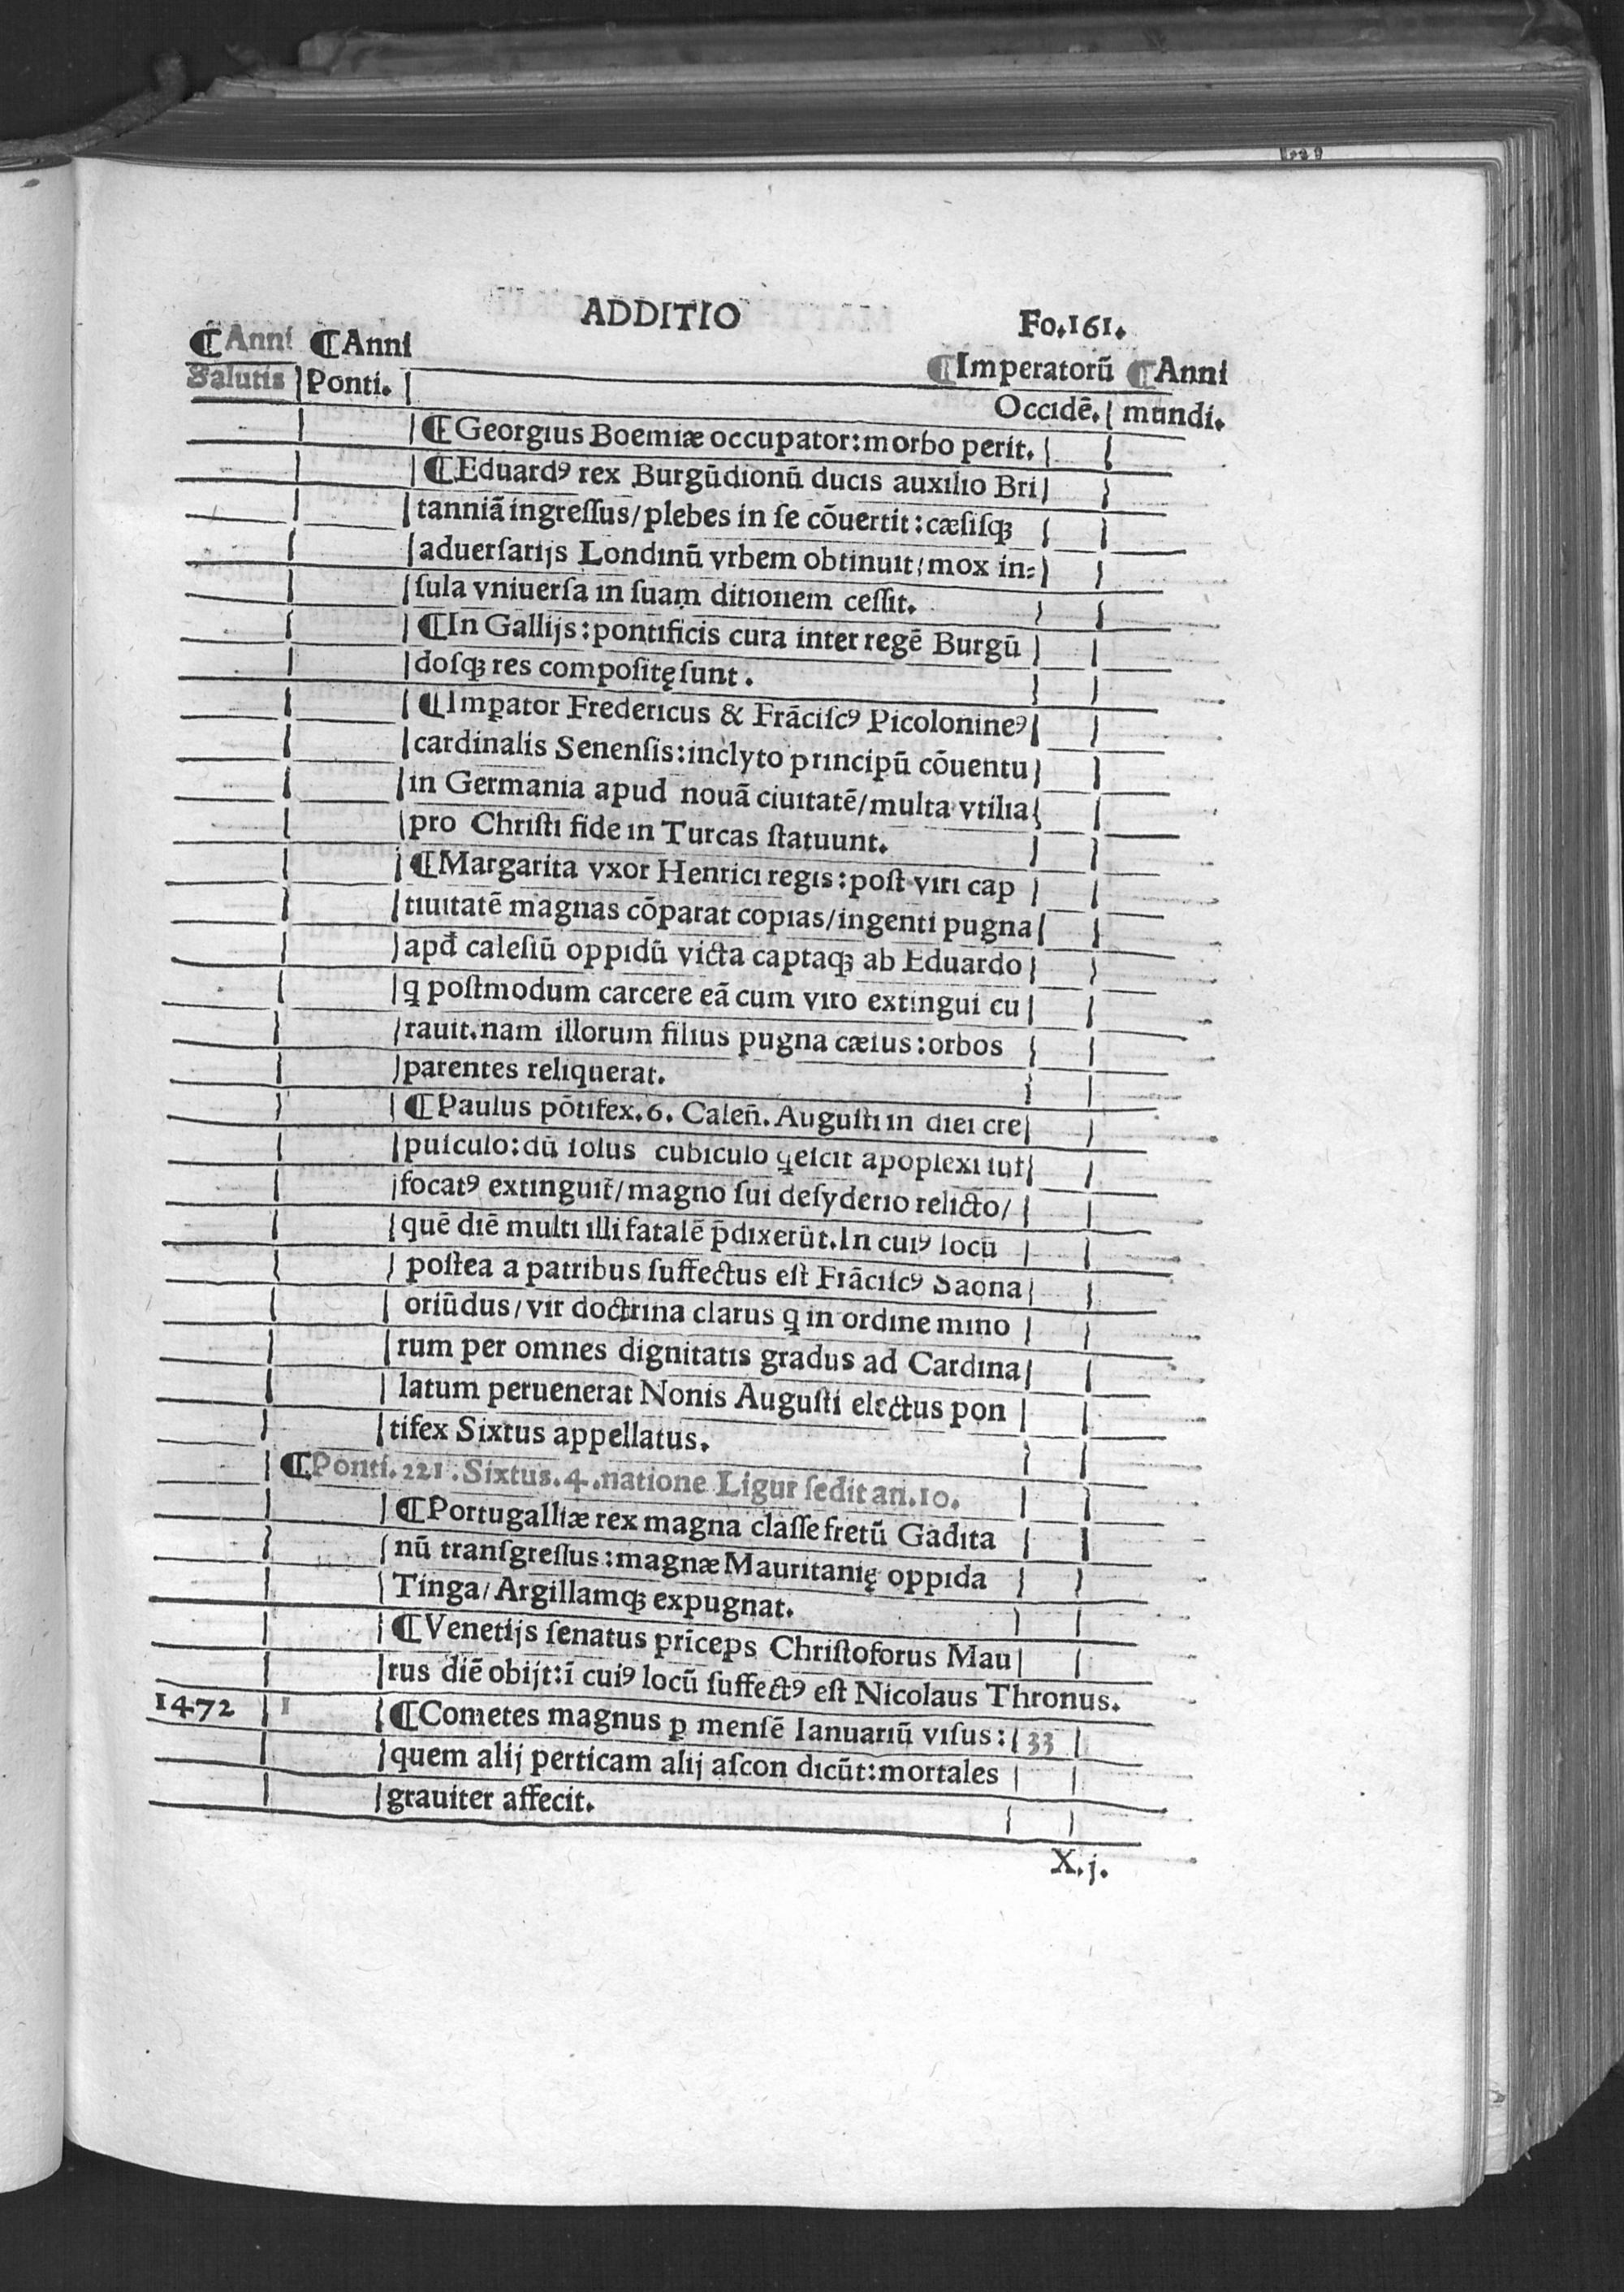 ADDITIO
Fo.161.
¶Anni ¶Anni ¶Imperatorū ¶Anni
Salutis Ponti. Occidē. mundi.
¶Georgius Boemiæ occupator:morbo perit.
¶Eduardꝰ rex Burgūdionū ducis auxilio Bri
tanniā ingreſſus/plebes in ſe cōuertit:cæſiſqꝫ
aduerſarijs Londinū vrbem obtinuit/mox in⸗
ſula vniuerſa in ſuam ditionem ceſſit.
¶In Gallijs:pontificis cura inter regē Burgū
doſqꝫ res compoſitę ſunt.
¶Imꝑator Fredericus & Frāciſcꝰ Picolonineꝰ
cardinalis Senenſis:inclyto principū cōuentu
in Germania apud nouā ciuitatē/multa vtilia
pro Chriſti fide in Turcas ſtatuunt.
¶Margarita vxor Henrici regis:poſt viri cap
tiuitatē magnas cōparat copias/ingenti pugna
apđ caleſiū oppidū victa captaqꝫ ab Eduardo
ꝗ poſtmodum carcere eā cum viro extingui cu
rauit.nam illorum filius pugna cæſus:orbos
parentes reliquerat.
¶Paulus pōtifex.6. Caleñ. Auguſti in diei cre
puſculo:dū ſolus cubiculo ꝗeſcit apoplexi ſuf
focatꝰ extinguit̄/magno ſui deſyderio relicto/
quē diē multi illi fatalē p̄dixerūt.In cuiꝰ locū
poſtea a patribus ſuffectus eſt Frāciſcꝰ Saona
oriūdus/vir doctrina clarus ꝗ in ordine mino
rum per omnes dignitatis gradus ad Cardina
latum peruenerat Nonis Auguſti electus pon
tifex Sixtus appellatus.
¶Ponti.221.Sixtus.4.natione Ligur ſedit an.10.
¶Portugalliæ rex magna claſſe fretū Gadita
nū tranſgreſſus:magnæ Mauritanię oppida
Tinga/Argillamqꝫ expugnat.
¶Venetijs ſenatus prīceps Chriſtoforus Mau
rus diē obijt:ī cuiꝰ locū ſuffectꝰ eſt Nicolaus Thronus.
1472 1 ¶Cometes magnus ꝑ menſē Ianuariū viſus: 33
quem alij perticam alij aſcon dicūt:mortales
grauiter affecit.
X.j.